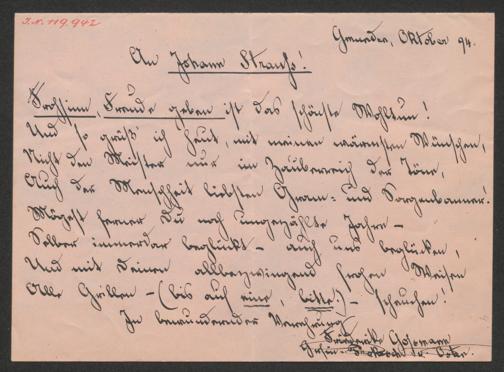 I.N. 119.942
Gmunden, Oktober 94.
An Johann Strauss!
Frohsinn, Freude geben ist das schönste Wohltun!
Und so grüß ich heut, mit meinen wärmsten Wünschen,
Nicht den Meister nur im Zauberreich der Töne,
Auch der Menschheit liebsten Gram- und Sorgenbanner!
Mögest ferner Du noch ungezählte Jahre –
Selber immerdar beglückt – auch uns beglücken,
Und mit Deinen allbezwingend frohen Weisen
Alle Grillen – (bis auf eine, bitte!) – scheuchen!
In bewundernder Verehrung
Friederike Gossmann
Gräfin Prokesch v. Osten.